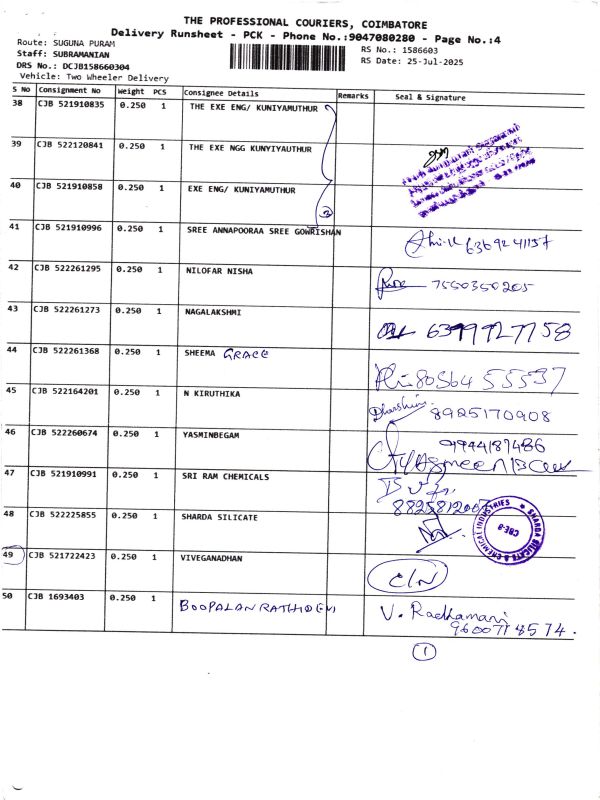 THE PROFESSIONAL COURIERS, COIMBATORE
Delivery Runsheet - PCK - Phone No.:9047080280 - Page No.:4
Route: SUGUNA PURAM
Staff: SUBRAMANIAN
DRS No.: DCJB158660304
Vehicle: Two Wheeler Delivery
RS No.: 1586603
RS Date: 25-Jul-2025
S No Consignment No Weight PCS Consignee Details Remarks Seal & Signature
38 CJB 521910835 0.250 1 THE EXE ENG/ KUNIYAMUTHUR
39 CJB 522120841 0.250 1 THE EXE NGG KUNYIYAUTHUR
40 CJB 521910858 0.250 1 EXE ENG/ KUNIYAMUTHUR
3
41 CJB 521910996 0.250 1 SREE ANNAPOORAA SREE GOWRISHAN 6369241137
42 CJB 522261295 0.250 1 NILOFAR NISHA 7550350205
43 CJB 522261273 0.250 1 NAGALAKSHMI 6399727758
44 CJB 522261368 0.250 1 SHEEMA GRACE 80564 55537
45 CJB 522164201 0.250 1 N KIRUTHIKA Dharshini 8925170908
46 CJB 522260674 0.250 1 YASMINBEGAM 9944187486
47 CJB 521910991 0.250 1 SRI RAM CHEMICALS
48 CJB 522225855 0.250 1 SHARDA SILICATE SHARDA SILICATE & CHEMICAL INDUSTRIES CBE-8
49 CJB 521722423 0.250 1 VIVEGANADHAN C/N
50 CJB 1693403 0.250 1 BOOPALAN RATHIDEVI V. Radhamani
9600718574.
1